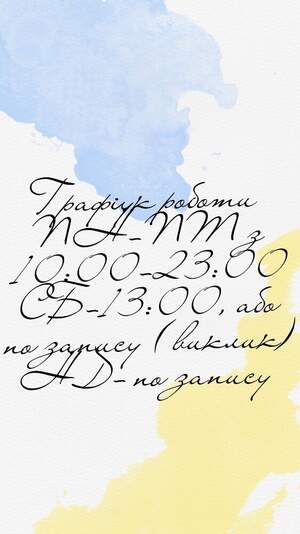 Графіук роботи
ПА-ПТ з
10:00-23:00
СБ-13:00, або
по запису (виклик)
НД- по запису